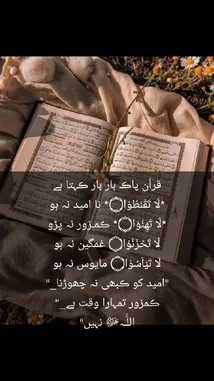 قرآن پاک بار بار کہتا ہے
*لَا تَقْنَطُوْا۝* نا امید نہ ہو
*لَا تَهِنُوْا۝* کمزور نہ پڑو
لَا تَحْزَنُوْا۝ غمگین نہ ہو
لَا تَيْأَسُوْا۝ مایوس نہ ہو
"امید کو کبھی نہ چھوڑنا_"
کمزور تمہارا وقت ہے_"
اللّٰہﷻ نہیں"